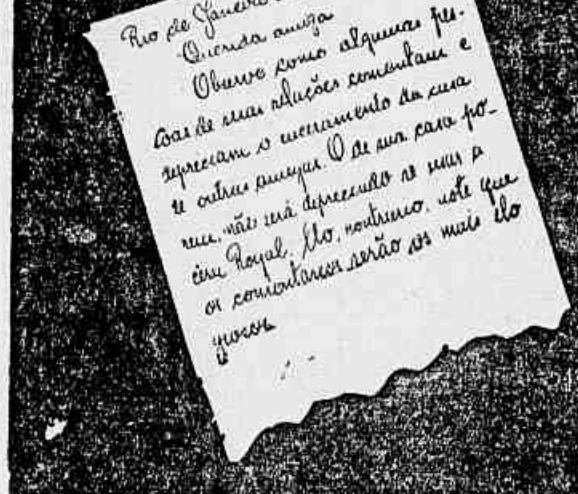 Rio de Janeiro
Querida amiga
Observe como algumas pes-
soas de suas relações comentam e
depreciam o enceramento da casa
de outras amigas. O de sua casa po-
rem, não será depreciado se usar a
cêra Royal. Ao, contrario, note que
os comentarios serão os mais elo
giosos